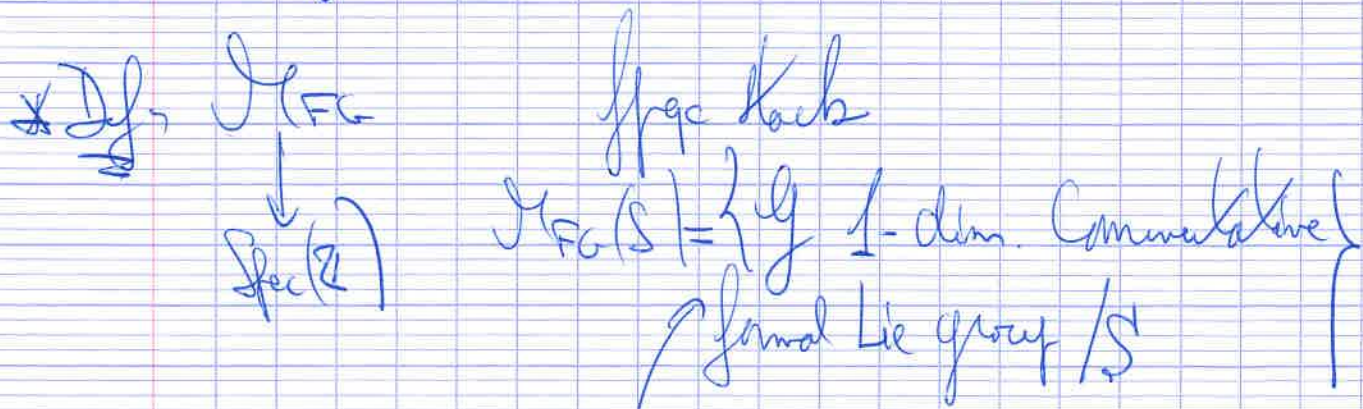 * Def: M_FG fpqc stack
↓
Spec(Z) M_FG(S) = { G 1-dim. Commutative
formal Lie group /S }